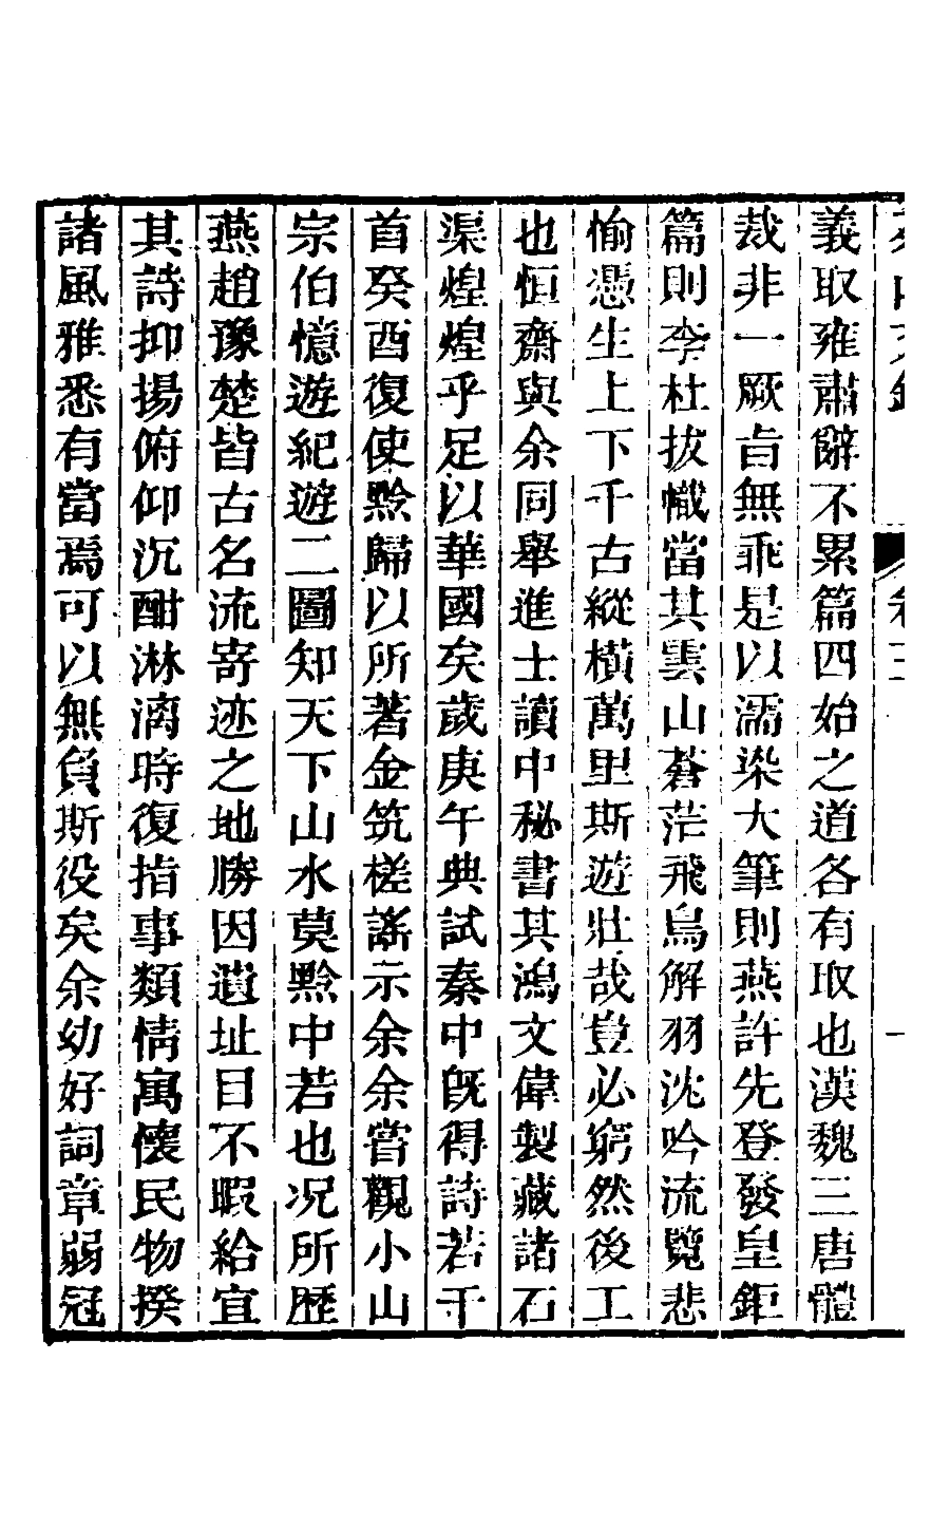 義取雍肅辭不累篇四始之道各有取也漢魏三唐體
裁非一厥旨無乖是以濡染大筆則燕許先登發皇鉅
篇則李杜拔幟當其雲山蒼茫飛鳥解羽沈吟流覽悲
愉憑生上下千古縱橫萬里斯遊壯哉豈必窮然後工
也恒齋與余同舉進士讀中秘書其鴻文偉製藏諸石
渠煌煌乎足以華國矣歲庚午典試秦中旣得詩若干
首癸酉復使黔歸以所著金筑槎謠示余余嘗觀小山
宗伯憶遊紀遊二圖知天下山水莫黔中若也况所歷
燕趙豫楚皆古名流寄迹之地勝因遺址目不暇給宜
其詩抑揚俯仰沉酣淋漓時復指事類情寓懷民物揆
諸風雅悉有當焉可以無負斯役矣余幼好詞章弱冠